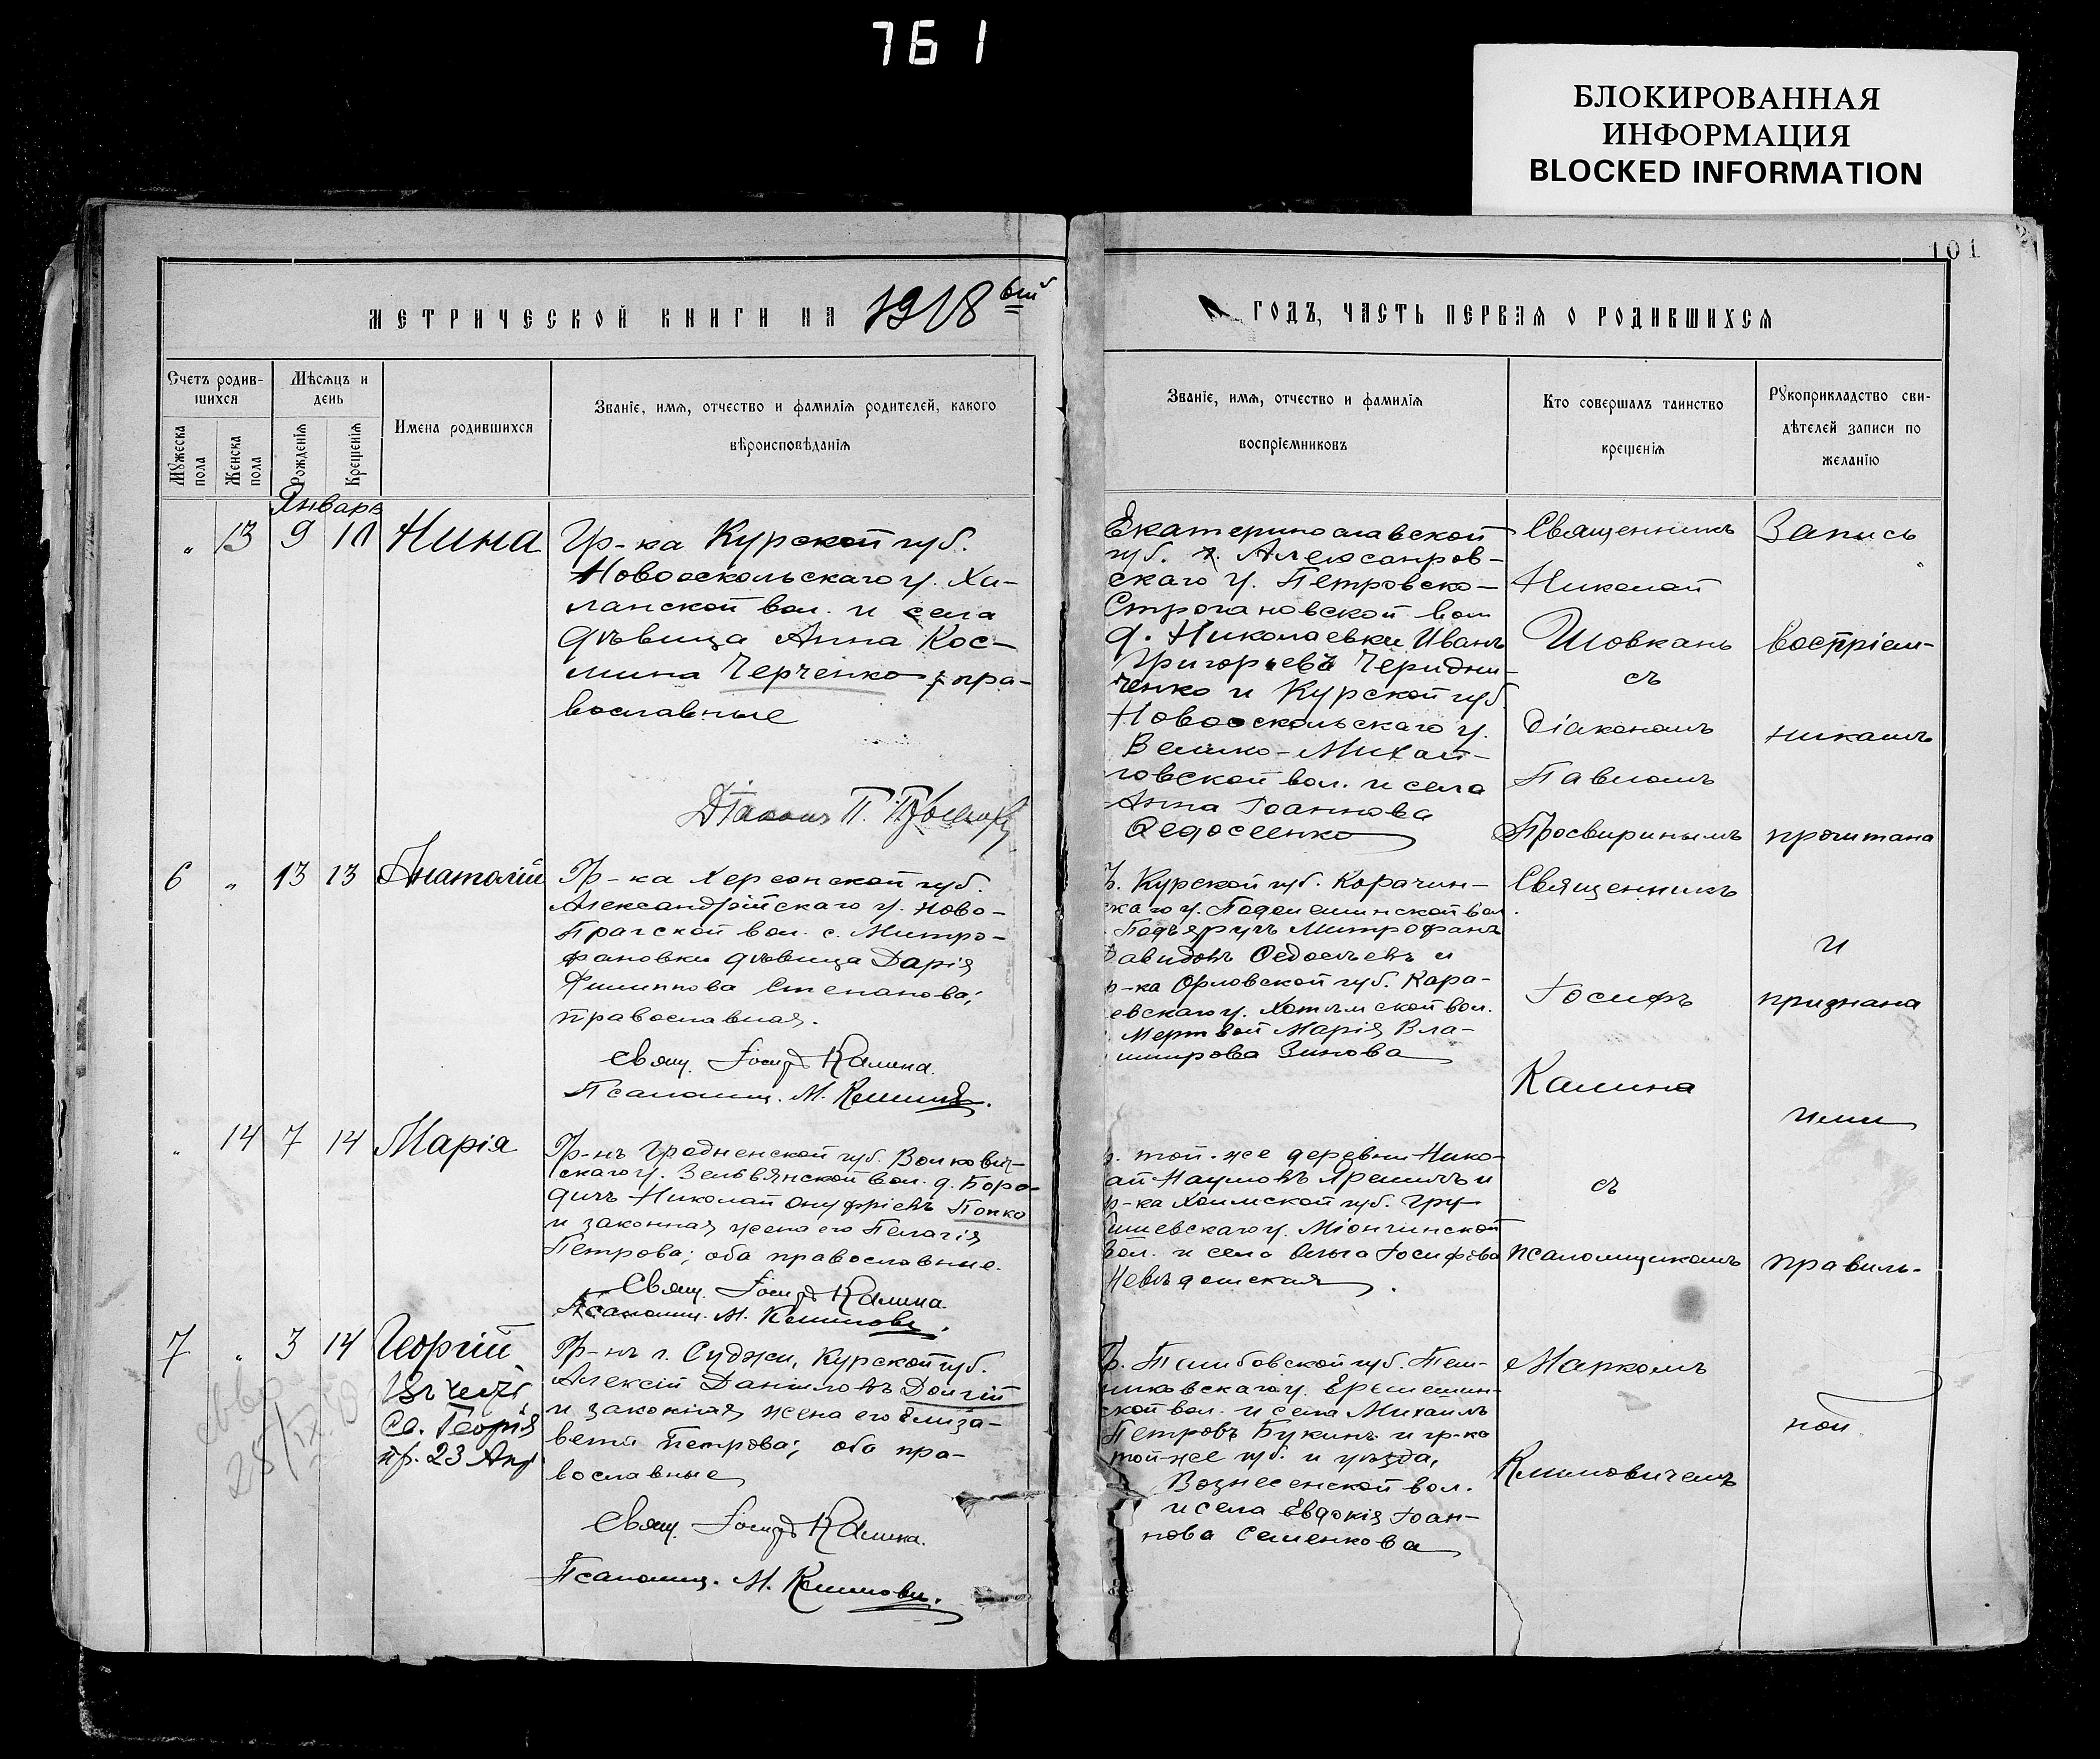 761
БЛОКИРОВАННАЯ
ИНФОРМАЦИЯ
BLOCKED INFORMATION
101
МЕТРИЧЕСКОЙ КНИГИ НА 1918
ГОДЪ, ЧАСТЬ ПЕРВАЯ О РОДИВШИХСЯ
Счетъ родив-
шихся
Мужеска
пола
Женска
пола
Мѣсяцъ и
день
Рожденія
Крещенія
Имена родившихся
Званіе, имя, отчество и фамилія родителей, какого
вѣроисповѣданія
Званіе, имя, отчество и фамилія
воспріемниковъ
Кто совершалъ таинство
крещенія
Рукоприкладство сви-
дѣтелей записи по
желанію
Январь
„ 13 9 10 Нина
Гр-ка Курской губ.
Новооскольскаго у. Ха-
ланской вол. и села
дѣвица Анна Кос-
мина Черченко; пра-
вославные
Діаконъ П.
Екатеринославской
губ. Александров-
скаго у. Петровско-
Строгановской вол
д. Николаевки Иванъ
Григорьевъ Черидни-
ченко и Курской губ
Новооскольскаго у.
Велико-Михай-
ловской вол. и села
Анна Іоаннова
Ѳедосеенко
Священникъ
Николай
Шовканъ
съ
діакономъ
Павломъ
Просвиринымъ
Запись
воспріем-
никамъ
прочитана
6 „ 13 13 Анатолій
Гр-ка Херсонской губ.
Александрійскаго у. Ново-
Прагской вол. с. Митро-
фановки дѣвица Дарія
Филиппова Степанова;
православная.
Свящ. Іосифъ Калина.
Псаломщ. М.
Курской губ. Корачин-
скаго у. вол.
Подъяругъ Митрофанъ
Давидовъ Ѳедосѣевъ и
гр-ка Орловской губ. Кара-
евскаго у. вол.
Мертвой Марія Вла-
имирова Зинова
Священникъ
Іосифъ
Калина
и
признана
ими
„ 14 7 14 Марія
Гр-нъ Гродненской губ. Волковыс-
скаго у. Зельвянской вол. д. Боро-
дичъ Николай Онуфріевъ Попко
и законная жена его Пелагія
Петрова; оба православные.
Свящ. Іосифъ Калина.
Псаломщ. М.
той-же деревни Нико-
ай Наумовъ и
р-ка Холмской губ. Гру-
бешевскаго у.
вол. и села Ольга Іосифова
съ
псаломщикомъ
правиль-
7 „ 3 14 Георгій
въ честь
Св. Георгія
пр. 23 Апр
Гр-нъ г. Суджи, Курской губ.
Алексій Даниловъ Долгій
и законная жена его Елиза-
вета Петрова; оба пра-
вославные
Свящ. Іосифъ Калина.
Псаломщ. М.
Гр. Тамбовской губ. Тем-
никовскаго у.
ской вол. и села Михаилъ
Петровъ Букинъ и гр-ка
той-же губ. и уѣзда,
Вознесенской вол.
и села Евдокія Іоан-
нова Семенкова
Маркомъ
Климовичемъ
ной